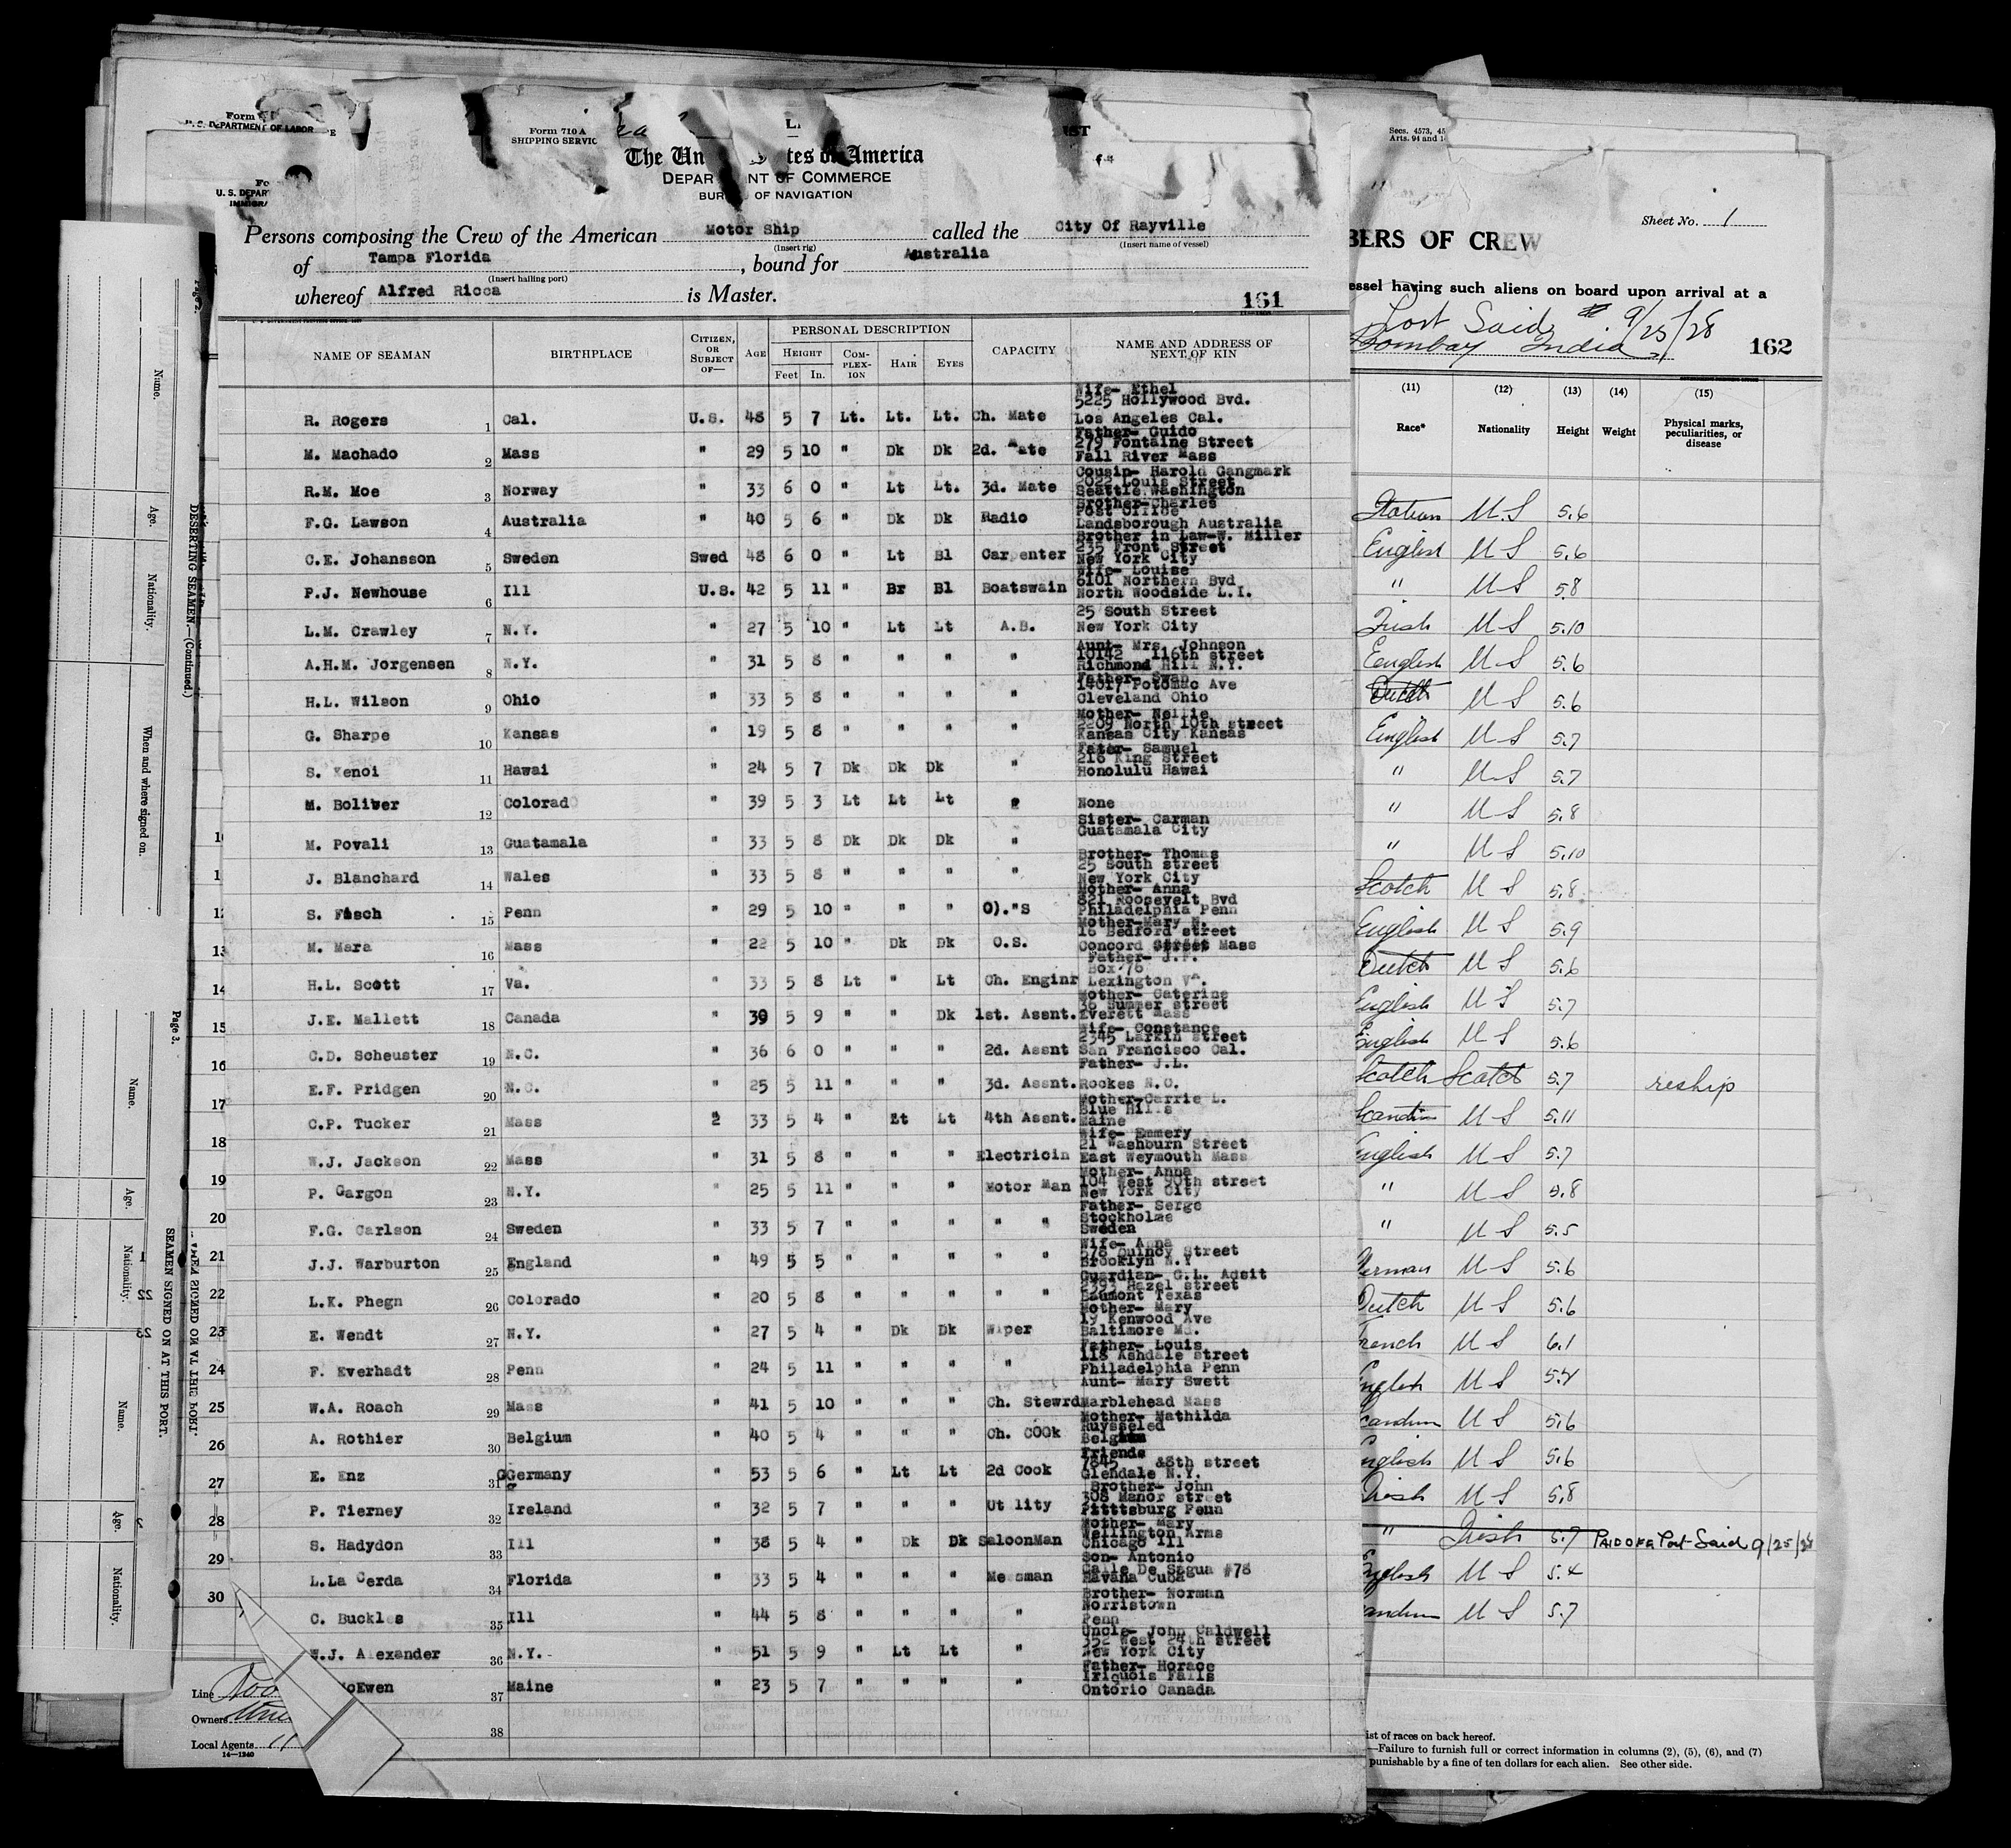 U. S. DEPARTMENT OF LABOR
Form 710 A
SHIPPING SERVIC
U. S. DEPAR
The Un tes of America
DEPAR NT OF COMMERCE
BUR OF NAVIGATION
Persons composing the Crew of the American Motor Ship called the City Of Rayville
(Insert rig) (Insert name of vessel)
of Tampa Florida, bound for Australia
(Insert hailing port)
whereof Alfred Ricca is Master.
161
NAME OF SEAMAN BIRTHPLACE CITIZEN, OR SUBJECT OF— AGE PERSONAL DESCRIPTION CAPACITY NAME AND ADDRESS OF NEXT OF KIN
HEIGHT COM-PLEX-ION HAIR EYES
Feet In.
Wife- Ethel
5225 Hollywood Bvd.
R. Rogers 1 Cal. U.S. 48 5 7 Lt. Lt. Lt. Ch. Mate Los Angeles Cal.
Father- Guido
279 Fontaine Street
M. Machado 2 Mass " 29 5 10 " Dk Dk 2d. Mate Fall River Mass
Cousin- Harold Gangmark
2022 Louis Street
R.M. Moe 3 Norway " 33 6 0 " Lt Lt. 3d. Mate Seattle Washington
Brother-Charles
Post Office
F.G. Lawson 4 Australia " 40 5 6 " Dk Dk Radio Landsborough Australia
Brother in Law-W. Miller
235 Front Street
C.E. Johansson 5 Sweden Swed 48 6 0 " Lt Bl Carpenter New York City
Wife- Louise
6101 Northern Bvd
P.J. Newhouse 6 Ill U.S. 42 5 11 " Br Bl Boatswain North Woodside L.I.
25 South Street
L.M. Crawley 7 N.Y. " 27 5 10 " Lt Lt A.B. New York City
Aunt- Mrs. Johnson
10142 116th street
A.H.M. Jorgensen 8 N.Y. " 31 5 8 " " " " Richmond Hill N.Y.
Father- Swan
14017 Potomac Ave
H.L. Wilson 9 Ohio " 33 5 8 " " " " Cleveland Ohio
Mother- Nellie
2209 North 10th street
G. Sharpe 10 Kansas " 19 5 8 " " " " Kansas City Kansas
Fater- Samuel
216 King Street
S. Kenoi 11 Hawai " 24 5 7 Dk Dk Dk " Honolulu Hawai
M. Boliver 12 Colorado " 39 5 3 Lt Lt Lt " None
Sister- Carman
Guatamala City
M. Povali 13 Guatamala " 33 5 8 Dk Dk Dk "
Brother- Thomas
25 South street
J. Blanchard 14 Wales " 33 5 8 " " " " New York City
Mother- Anna
821 Roosevelt Bvd
S. Fasch 15 Penn " 29 5 10 " " " O)."S Philadelphia Penn
Mother-Mary N.
16 Bedford street
M. Mara 16 Mass " 22 5 10 " Dk Dk O.S. Concord Street Mass
Father- J.P.
Box 76
H.L. Scott 17 Va. " 33 5 8 Lt " Lt Ch. Enginr Lexington Va.
Mother- Caterine
36 Summer street
J.E. Mallett 18 Canada " 39 5 9 " " Dk 1st. Assnt. Everett Mass
Wife- Constance
2345 Larkin street
C.D. Scheuster 19 N.C. " 36 6 0 " " " 2d. Assnt San Francisco Cal.
Father- J.L.
E.F. Pridgen 20 N.C. " 25 5 11 " " " 3d. Assnt. Rookes N.C.
Mother-Carrie L.
Blue Hills
C.P. Tucker 21 Mass 2 33 5 4 " Lt Lt 4th Assnt. Maine
Wife- Emmery
21 Washburn Street
W.J. Jackson 22 Mass " 31 5 8 " " " Electricin East Weymouth Mass
Mother- Anna
104 West 90th street
P. Gargon 23 N.Y. " 25 5 11 " " " Motor Man New York City
Father- Serge
Stockholme
F.G. Carlson 24 Sweden " 33 5 7 " " " " " Sweden
Wife- Anna
578 Quincy Street
J.J. Warburton 25 England " 49 5 5 " " " " " Brooklyn N.Y
Guardian- C.L. Adsit
2393 Hazel street
L.K. Phegn 26 Colorado " 20 5 8 " " " " " Baumont Texas
Mother- Mary
19 Kenwood Ave
E. Wendt 27 N.Y. " 27 5 4 " Dk Dk Wiper Baltimore Md.
Father- Louis
118 Ashdale street
F. Everhadt 28 Penn " 24 5 11 " " " " Philadelphia Penn
Aunt- Mary Swett
W.A. Roach 29 Mass " 41 5 10 " " " Ch. Stewrd Marblehead Mass
Mother- Mathilda
Ruysseled
A. Rothier 30 Belgium " 40 5 4 " " " Ch. COOk Belgium
Friends
7845 88th street
E. Enz 31 GGermany " 53 5 6 " Lt Lt 2d Cook Glendale N.Y.
Brother- John
308 Manor street
P. Tierney 32 Ireland " 32 5 7 " " " Ut lity Pitttsburg Penn
Mother- Mary
Wellington Arms
S. Hadydon 33 Ill " 38 5 4 " Dk Dk SaloonMan Chicago Ill
Son- Antonio
Calle De Sagua #78
L.La Cerda 34 Florida " 33 5 4 " " " Messman Havana Cuba
Brother- Norman
Norristown
C. Buckles 35 Ill " 44 5 8 " " " " Penn
Uncle- John Caldwell
352 West 24th street
W.J. Alexander 36 N.Y. " 51 5 9 " Lt Lt " New York City
Father- Horace
Iriquois Falls
cEwen 37 Maine " 23 5 7 " " " " Ontorio Canada
38
Line
Owners
Local Agents
14—1240
Secs. 4573, 45
Arts. 94 and 1
Sheet No. 1
BERS OF CREW
essel having such aliens on board upon arrival at a
Port Said 9/25/28
Bombay India 162
(11) (12) (13) (14) (15)
Race* Nationality Height Weight Physical marks, peculiarities, or disease
Italian U.S 5.6
English U S 5.6
" U S 5.8
Irish U S 5.10
English U S 5.6
Dutch U S 5.6
English U S 5.7
" U S 5.7
" U S 5.8
" U S 5.10
Scotch U S 5.8
English U S 5.9
Dutch U S 5.6
English U S 5.7
English U S 5.6
Scotch Scotch 5.7 reship
Scandin U S 5.11
English U S 5.7
" U S 5.8
" U S 5.5
erman U S 5.6
Dutch U S 5.6
rench U S 6.1
nglish U S 5.4
candin U S 5.6
nglish U S 5.6
Irish U S 5.8
" Irish 5.7 PAID OFF Port Said 9/25/28
English U S 5.4
candin U S 5.7
ist of races on back hereof.
—Failure to furnish full or correct information in columns (2), (5), (6), and (7)
punishable by a fine of ten dollars for each alien. See other side.
Name.
Age.
Nationality.
When and where signed on.
DESERTING SEAMEN.—(Continued.)
Page 3.
Name.
Age.
Nationality.
SEAMEN SIGNED ON AT THIS PORT.
Name.
Age.
Nationality.
13
14
15
16
17
18
19
20
21
22
23
24
25
26
27
28
29
30